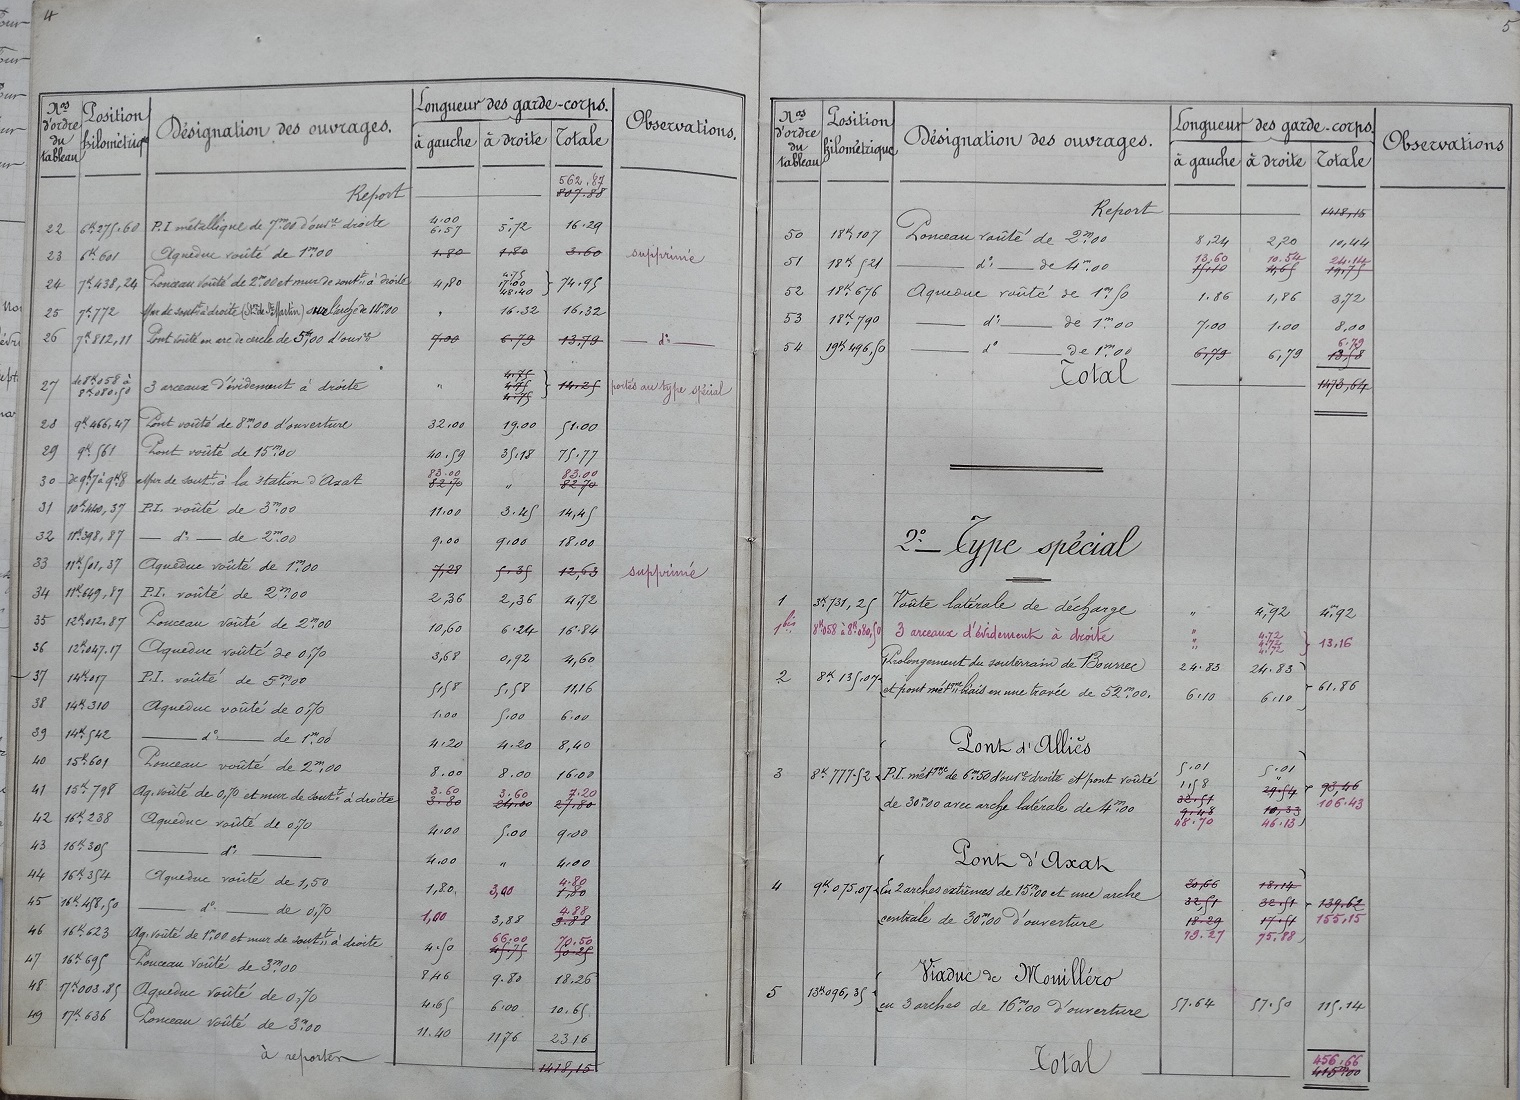 4
Nos d'ordre du tableau | Position kilométrique | Désignation des ouvrages. | Longueur des garde-corps. | Observations.
à gauche | à droite | Totale
Report 562.87 807.88
22 6k275.60 P.I métallique de 7m00 d'ouvre droite 4.00 6.57 5.72 16.29
23 6k601 Aqueduc voûté de 1m00 1.80 1.80 3.60 supprimé
24 7k438,24 Ponceau voûté de 2m00 et mur de soutt à droite 4,80 4.75 17.00 48.40 74.95
25 7k772 Mur de soutt à droite (St Martin) sur l'arge de 14m00 " 16.32 16,32
26 7k812,11 Pont voûté en arc de cercle de 5m00 d'ouvre 7.00 6.79 13,79 — do —
27 de 8k058 à 8k080.50 3 arceaux d'évidement à droite " 4.75 4.75 4.75 14.25 portés au type spécial
28 9k466,47 Pont voûté de 8m00 d'ouverture 32.00 19.00 51.00
29 9k561 Pont voûté de 15m00 40.59 35.18 75.77
30 de 9k7 à 9k8 Mur de soutt à la station d'Axat 83.00 82.70 " 83.00 82.70
31 10k440,37 P.I. voûté de 3m00 11.00 3.45 14,45
32 11k398,87 — do — de 2m00 9.00 9.00 18.00
33 11k501,37 Aqueduc voûté de 1m00 7,28 5.35 12,63 supprimé
34 11k649,87 P.I. voûté de 2m00 2,36 2,36 4,72
35 12k012,87 Ponceau voûté de 2m00 10,60 6.24 16.84
36 12k047.17 Aqueduc voûté de 0,70 3,68 0,92 4,60
37 14k017 P.I. voûté de 5m00 5,58 5,58 11,16
38 14k310 Aqueduc voûté de 0,70 1.00 5.00 6.00
39 14k542 — do — de 1m00 4.20 4.20 8,40
40 15k601 Ponceau voûté de 2m00 8.00 8.00 16.00
41 15k798 Aq. voûté de 0,70 et mur de soutt à droite 3.60 3.80 3.60 24.00 7.20 27.80
42 16k238 Aqueduc voûté de 0,70 4.00 5.00 9.00
43 16k305 — do — 4.00 " 4.00
44 16k354 Aqueduc voûté de 1,50 1,80 3,00 4.80 1,80
45 16k458,50 — do — de 0,70 1,00 3,88 4.88 3.88
46 16k623 Aq. voûté de 1m00 et mur de soutt à droite 4.50 66.00 45.75 70.50 50.25
47 16k695 Ponceau voûté de 3m00 8.46 9.80 18.26
48 17k003.85 Aqueduc voûté de 0,70 4.65 6.00 10.65
49 17k636 Ponceau voûté de 3m00 11.40 11.76 23.16
à reporter 1418,15
5
Nos d'ordre du tableau | Position kilométrique | Désignation des ouvrages. | Longueur des garde-corps. | Observations
à gauche | à droite | Totale
Report 1418,15
50 18k107 Ponceau voûté de 2m00 8,24 2,20 10,44
51 18k521 — do — de 4m00 13.60 10.54 24.14 19,75
52 18k676 Aqueduc voûté de 1m50 1.86 1,86 3,72
53 18k790 — do — de 1m00 7.00 1.00 8,00
54 19k496,50 — do — de 1m00 6,79 6,79 6.79 13,58
Total 1473,64
2o — Type spécial
1 3k731,25 Voûte latérale de décharge " 4m92 4m92
1bis 8k058 à 8k080,50 3 arceaux d'évidement à droite " 4.72 " 4.72 " 4.72 13,16
2 8k135.07 Prolongement du souterrain de Bourrec 24.83 24.83
et pont métque biais en une travée de 52m00. 6.10 6.10 61.86
Pont d'Alliès
3 8k777.52 P.I. métque de 6m50 d'ouvre droite et pont voûté 5.01 5.01
de 30m00 avec arche latérale de 4m00 1,58 " 32.51 29.54 9.48 10,33 48.70 46.13 93,46 106.43
Pont d'Axat
4 9k075.07 En 2 arches extrêmes de 15m00 et une arche 20,66 18.14
centrale de 30m00 d'ouverture 32,51 32.51 18.29 17.51 79.27 75,88 139.62 155,15
Viaduc de Mouilléro
5 13k096,35 en 3 arches de 16m00 d'ouverture 57.64 57.50 115.14
Total 456.66